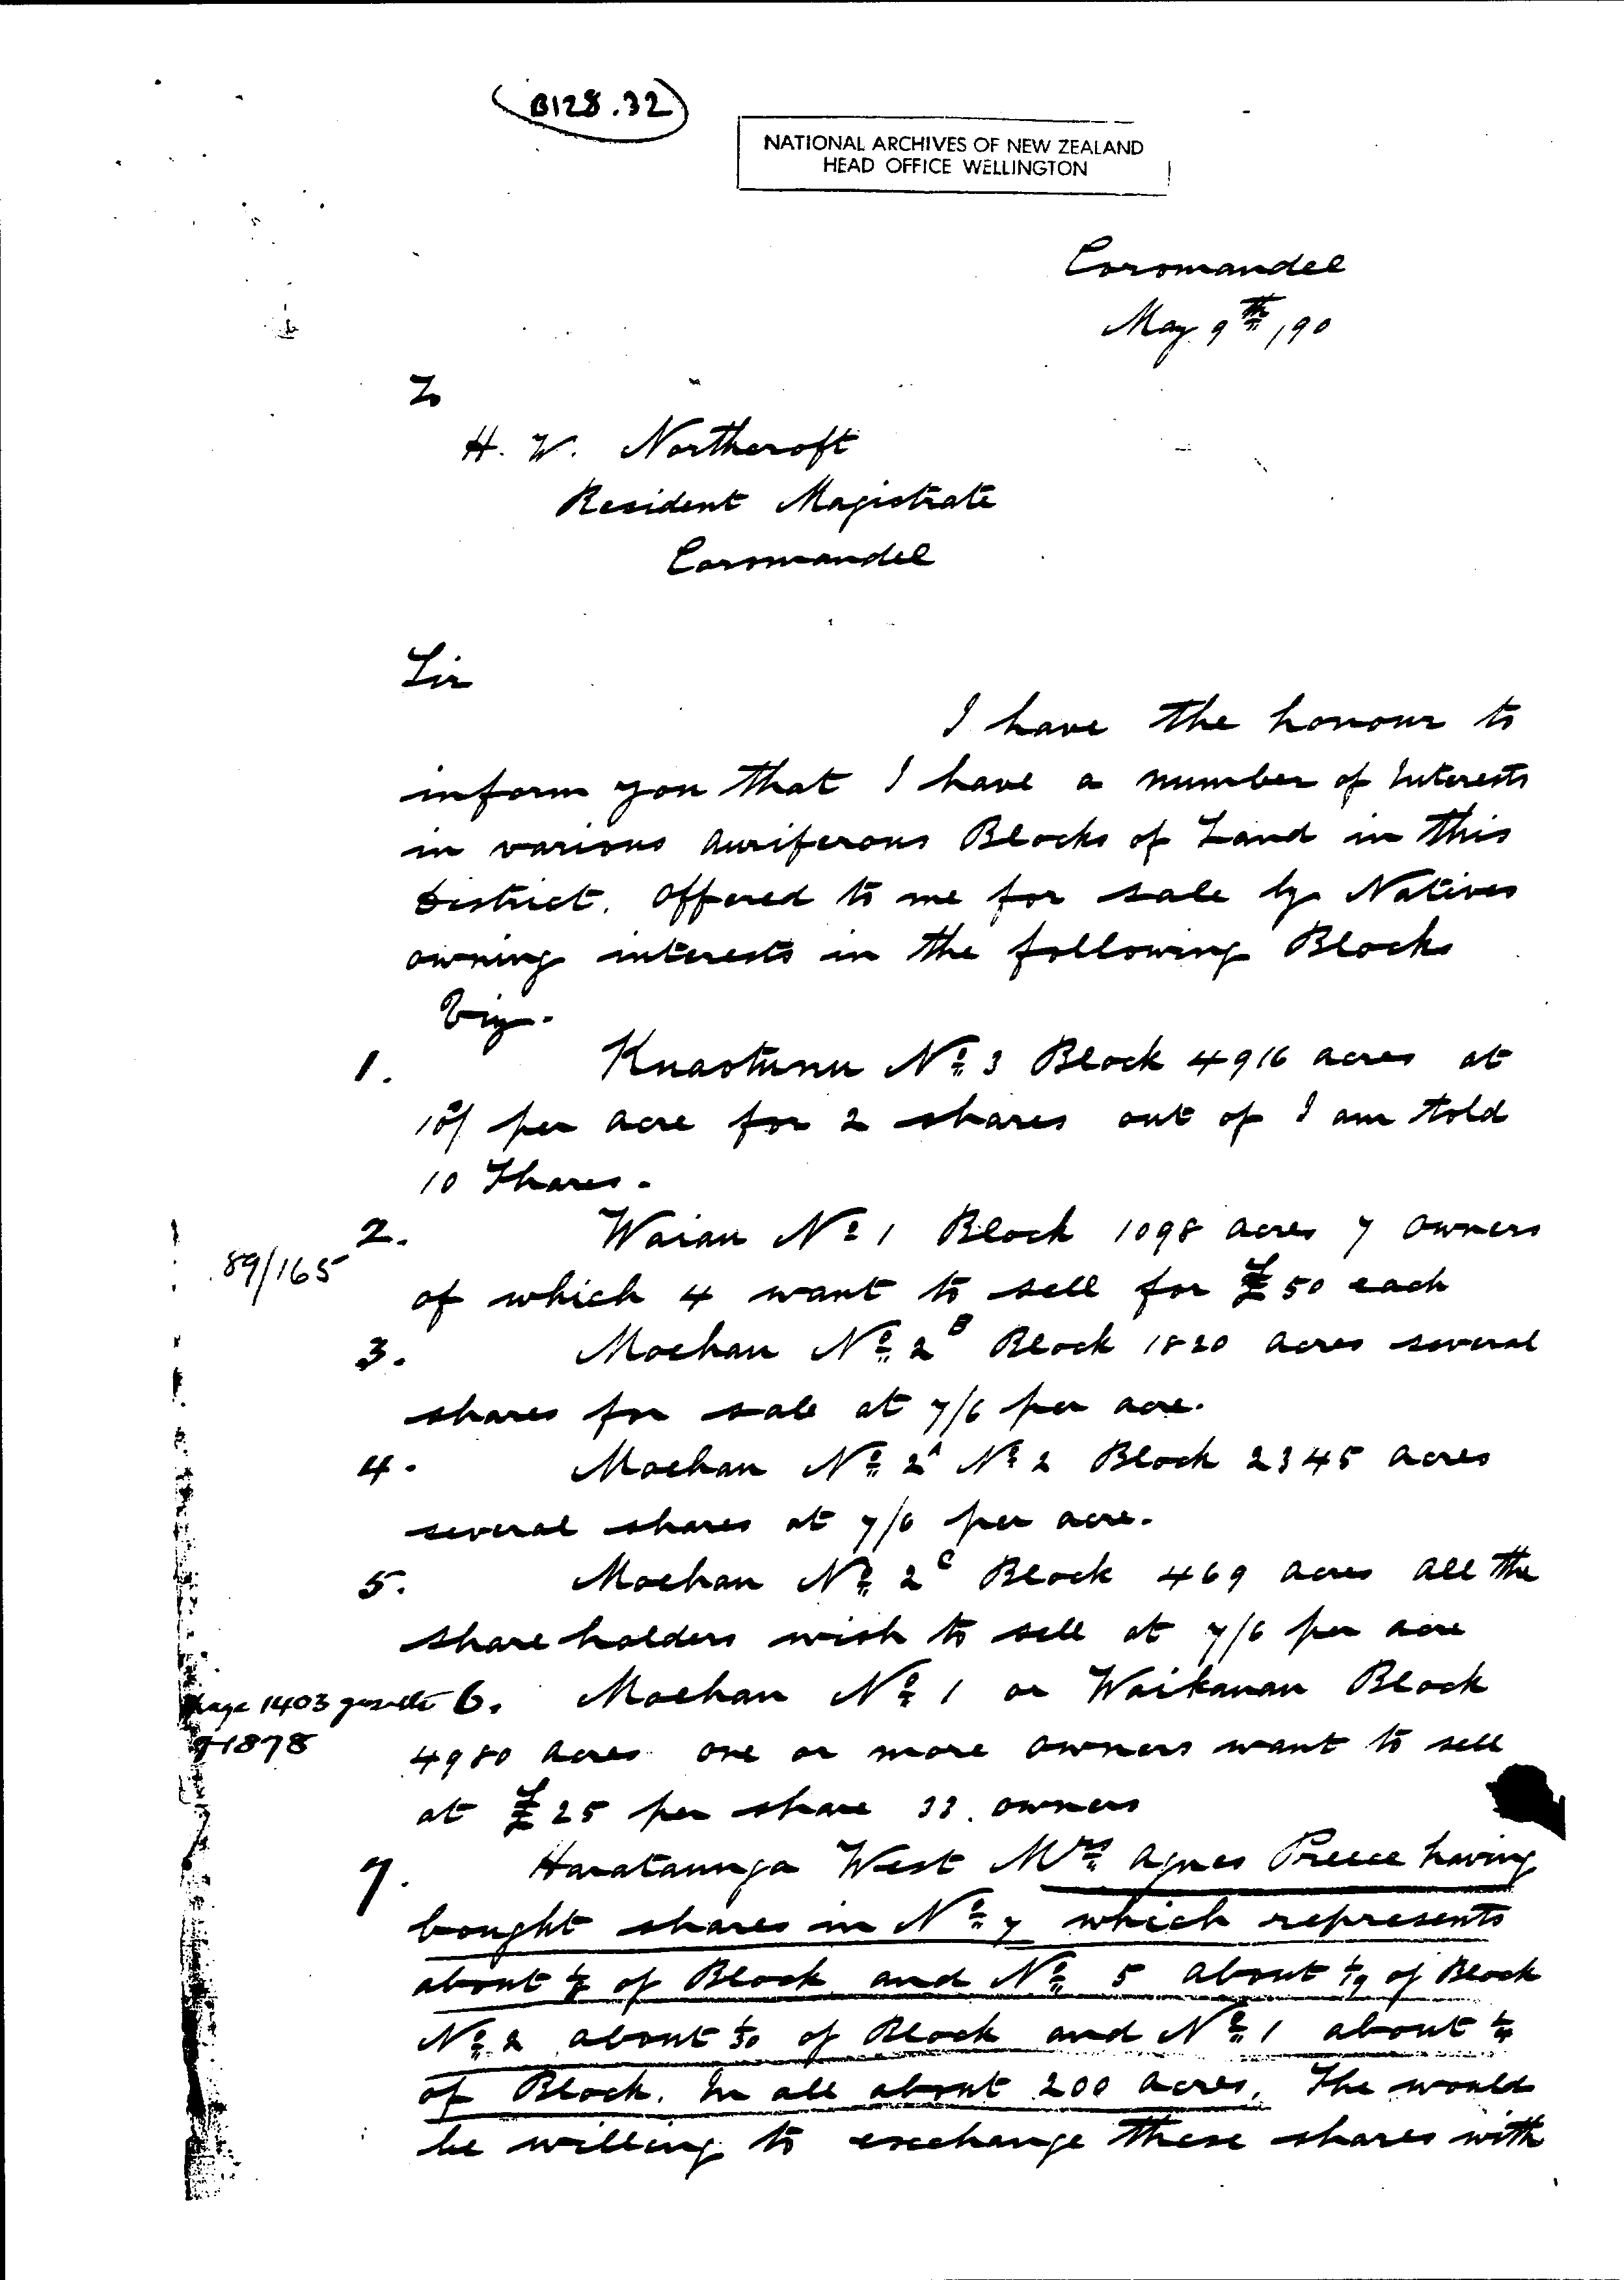 B128.32
NATIONAL ARCHIVES OF NEW ZEALAND
HEAD OFFICE WELLINGTON
Coromandel
May 9th /90
To
H. W. Northcroft
Resident Magistrate
Coromandel
Sir
I have the honour to
inform you that I have a number of Interests
in various Auriferous Blocks of Land in this
District. Offered to me for sale by Natives
owning interests in the following Blocks
Viz.
1. Kuaotunu No. 3 Block 4916 acres at
10/ per acre for 2 shares out of I am told
10 Shares.
2. Waiau No 1 Block 1098 acres 7 owners
89/165
of which 4 want to sell for £50 each
3. Moehau No. 2B Block 1820 acres several
shares for sale at 7/6 per acre.
4. Moehau No. 2A No 2 Block 2345 acres
several shares at 7/6 per acre.
5. Moehau No. 2C Block 469 acres all the
share holders wish to sell at 7/6 per acre
page 1403 gazette 6. Moehau No. 1 or Waikawau Block
1878
4980 acres one or more owners want to sell
at £25 per share 33 owners
7. Harataunga West Mrs Agnes Preece having
bought shares in No. 7 which represents
about of Block and No. 5 about 1/19 of Block
No. 2 about 1/30 of Block and No. 1 about 1/4
of Block. In all about 200 acres. She would
be willing to exchange these shares with